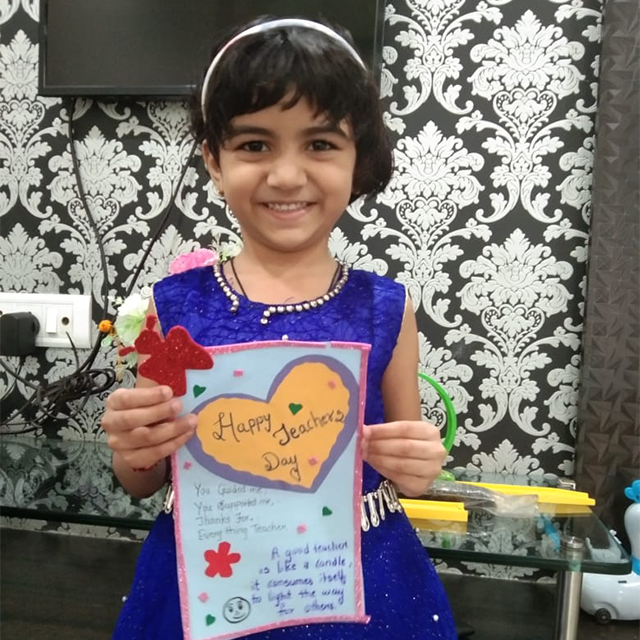 Happy
Teachers
Day
You Guided me,
You Supported me,
Thanks For,
Everything Teacher
A good teacher
is like a candle,
it consumes itself
to light the way
for others.